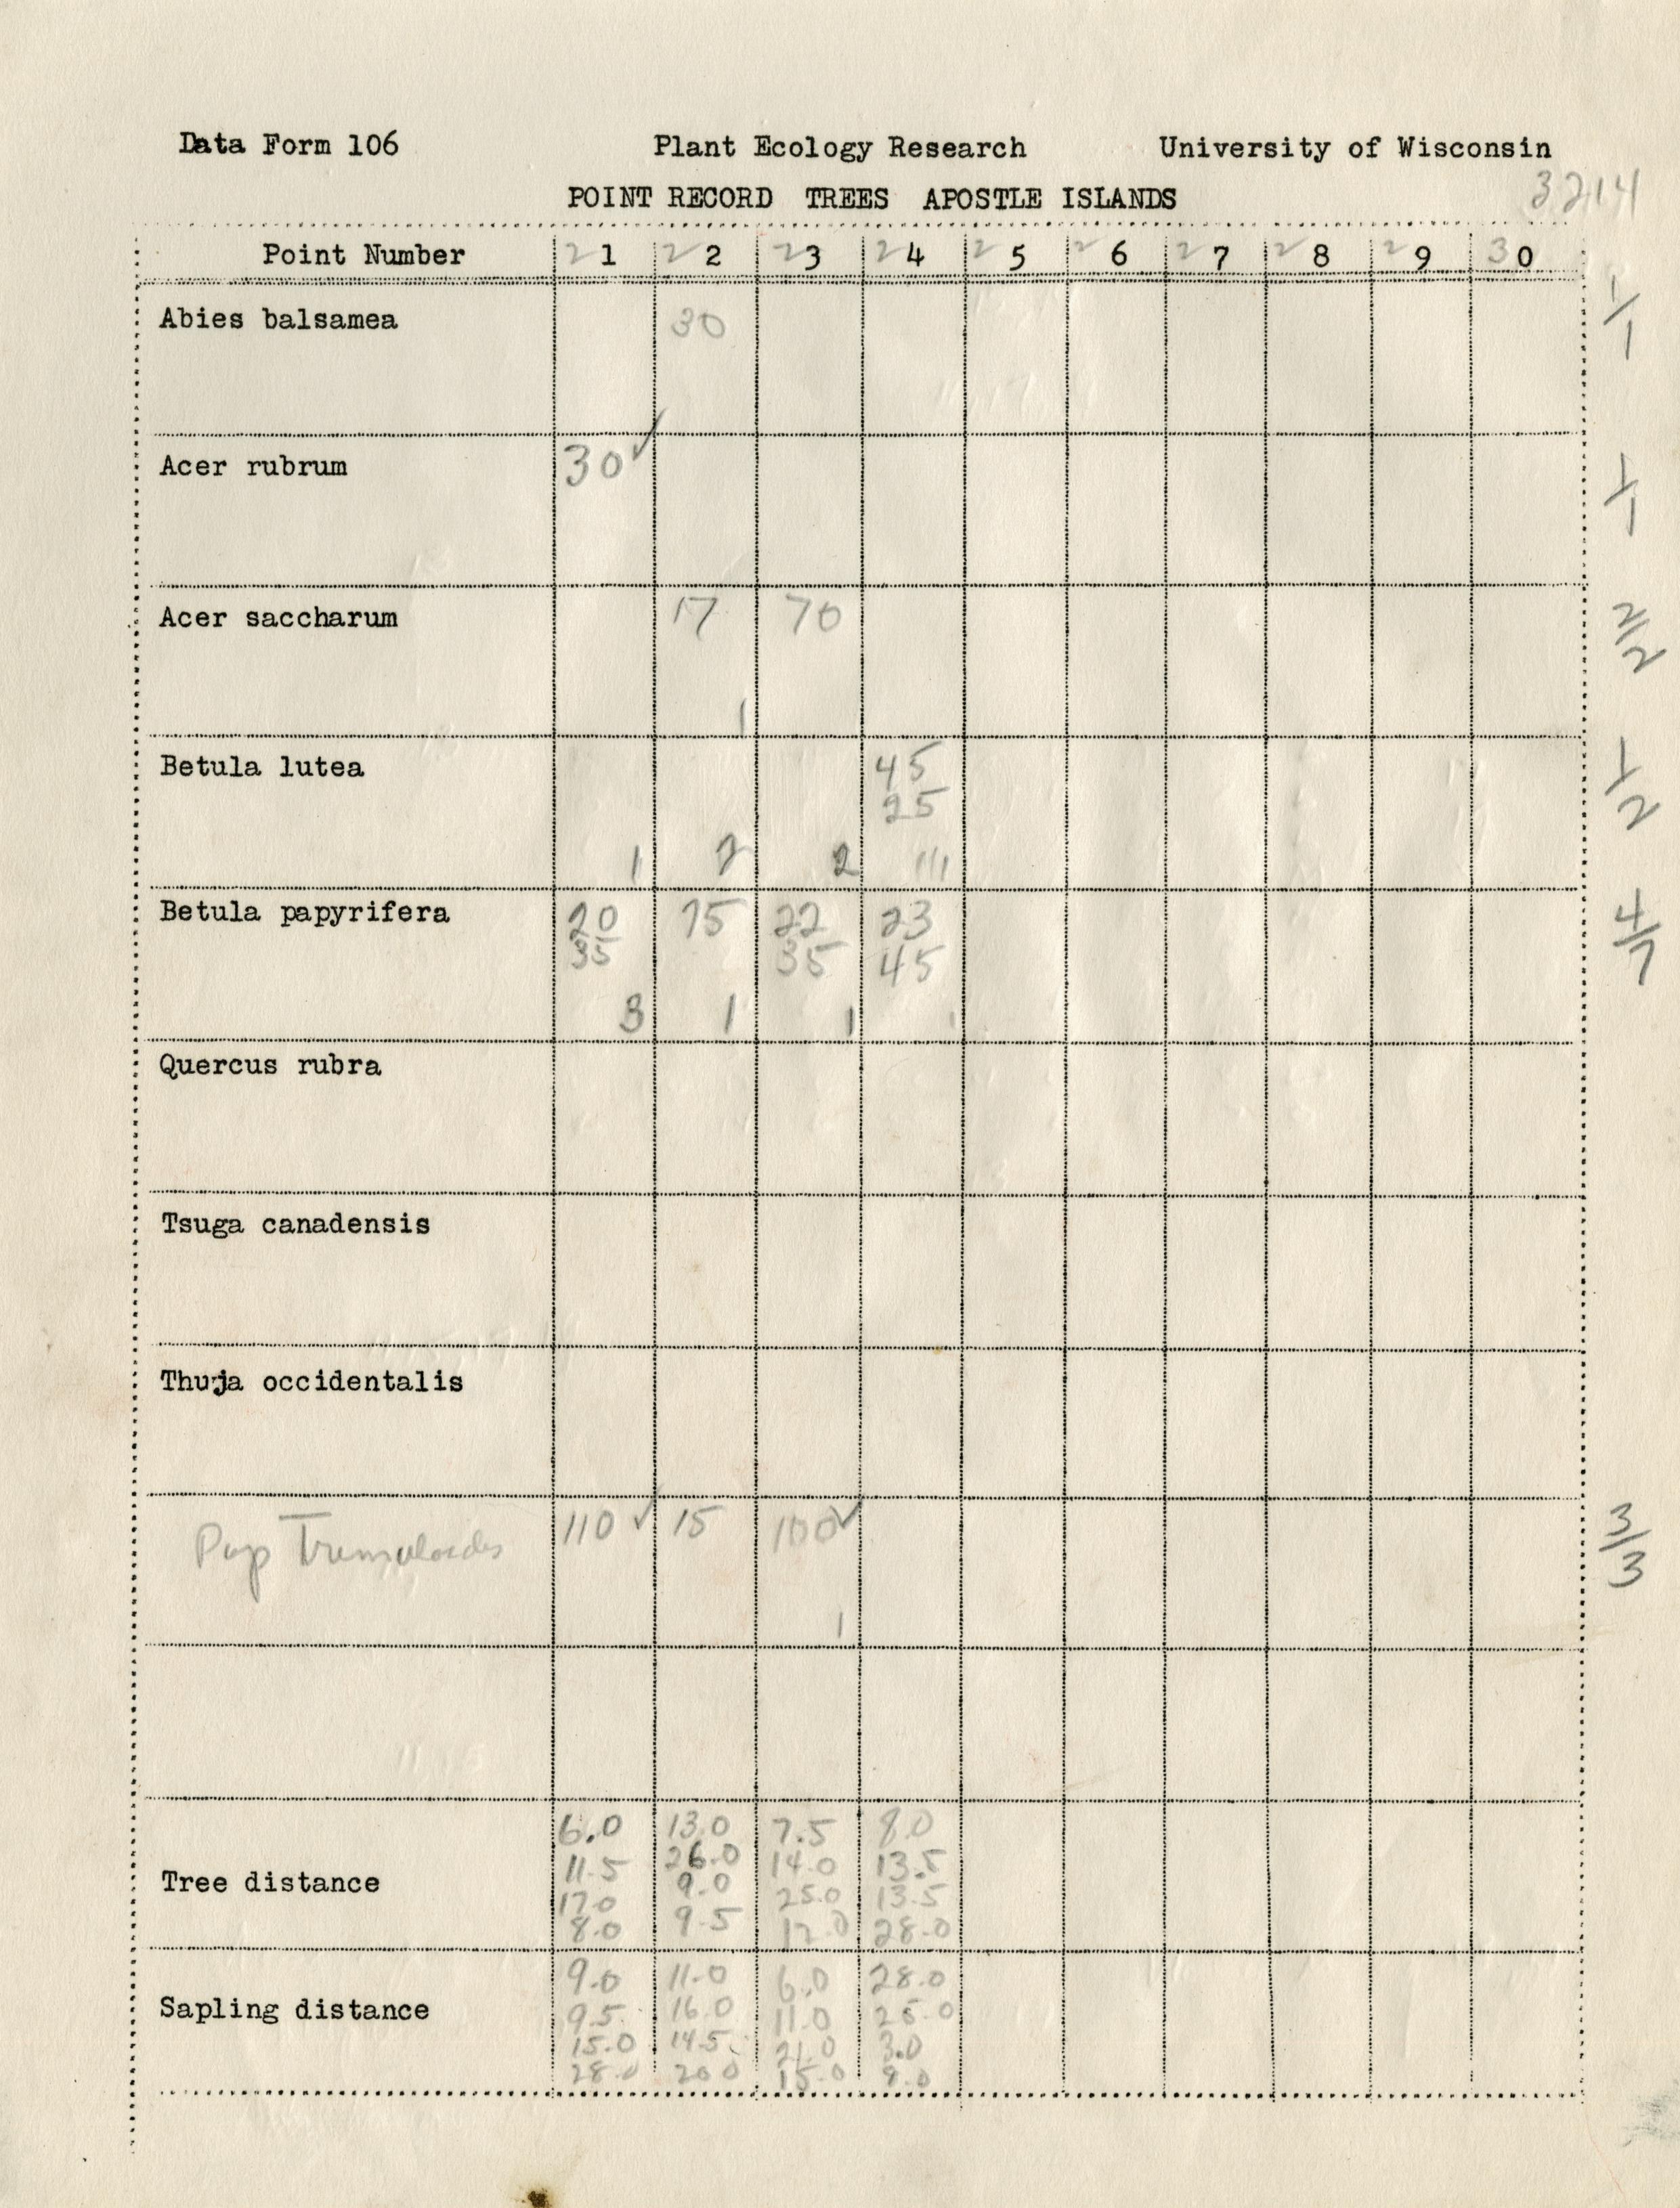 Data Form 106 Plant Ecology Research University of Wisconsin
POINT RECORD TREES APOSTLE ISLANDS 3214
Point Number 21 22 23 24 25 26 27 28 29 30
Abies balsamea 30 1/1
Acer rubrum 30✓ 1/1
Acer saccharum 17 70 2/2
1
Betula lutea 45 1/2
25
1 2 2 111
Betula papyrifera 20 15 22 23 4/7
35 35 45
3 1 1 1
Quercus rubra
Tsuga canadensis
Thuja occidentalis
Pop Tremuloides 110 ✓ 15 100✓ 3/3
1
6.0 13.0 7.5 8.0
11.5 26.0 14.0 13.5
Tree distance 17.0 9.0 25.0 13.5
8.0 9.5 17.0 28.0
9.0 11.0 6.0 28.0
Sapling distance 9.5 16.0 11.0 25.0
15.0 14.5 21.0 3.0
28.0 20.0 15.0 9.0